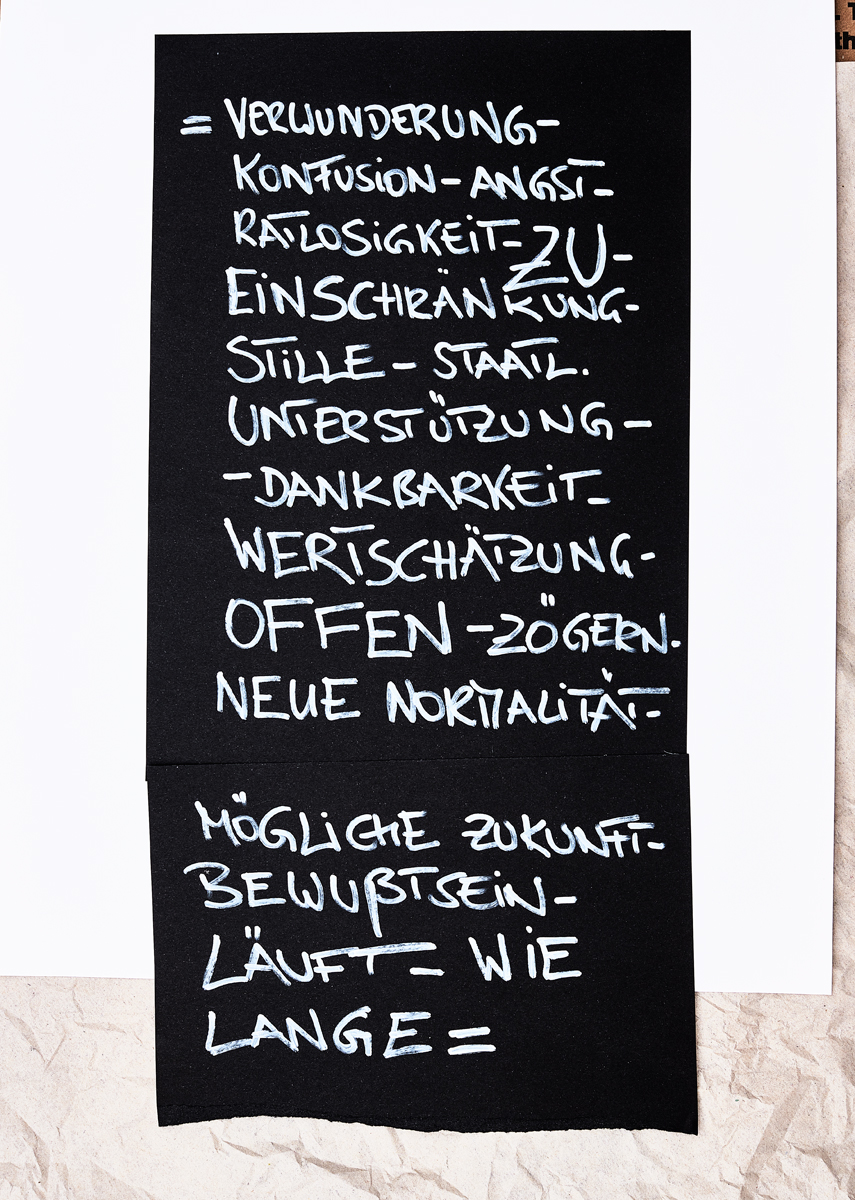 = VERWUNDERUNG-
KONFUSION-ANGST-
RATLOSIGKEIT-ZU-
EINSCHRÄNKUNG-
STILLE - STAATL.
UNTERSTÜTZUNG -
-DANKBARKEIT-
WERTSCHÄTZUNG-
OFFEN -ZÖGERN.
NEUE NORMALITÄT-
MÖGLICHE ZUKUNFT-
BEWUßTSEIN-
LÄUFT- WIE
LANGE =